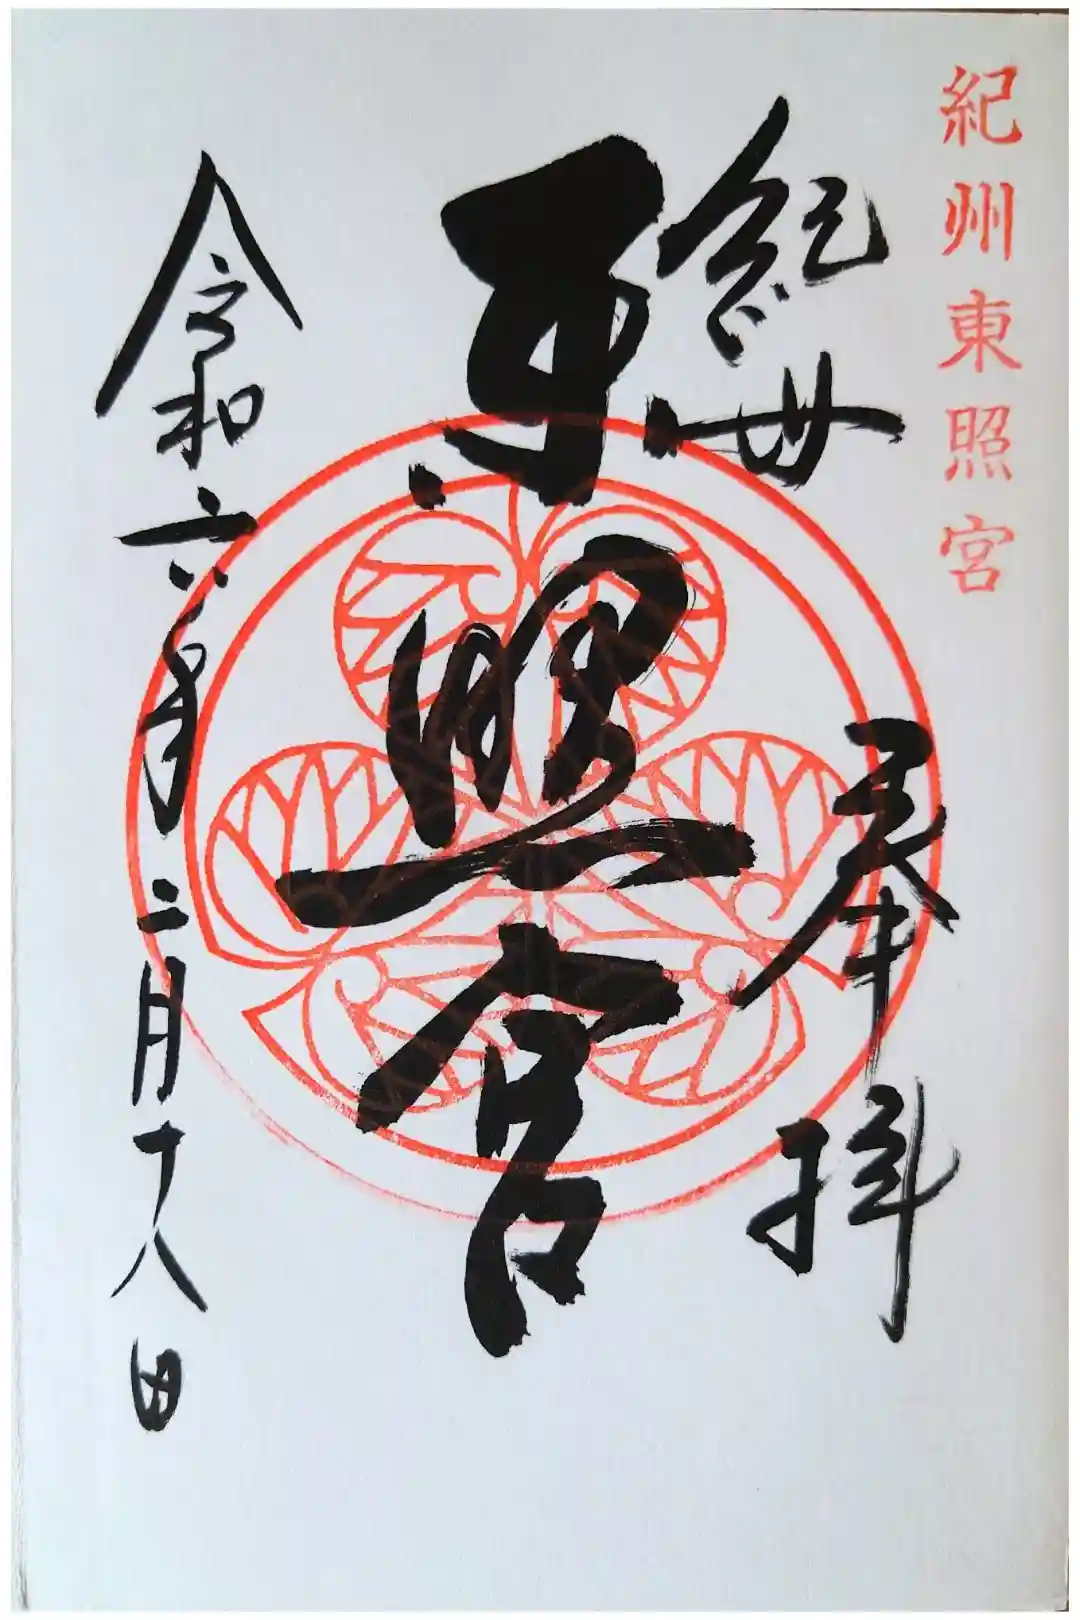 紀州東照宮
紀州
奉拝
東照宮
令和六年二月十八日